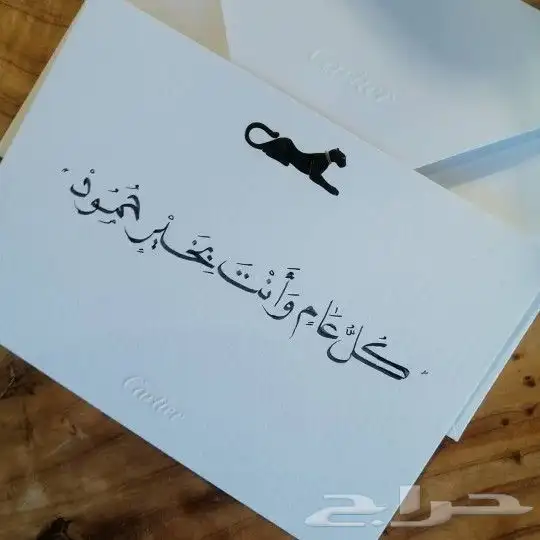 Cartier
" كُلُّ عَامٍ وَأَنْتَ بِخَيْرٍ حُمُودْ "
Cartier
حراج